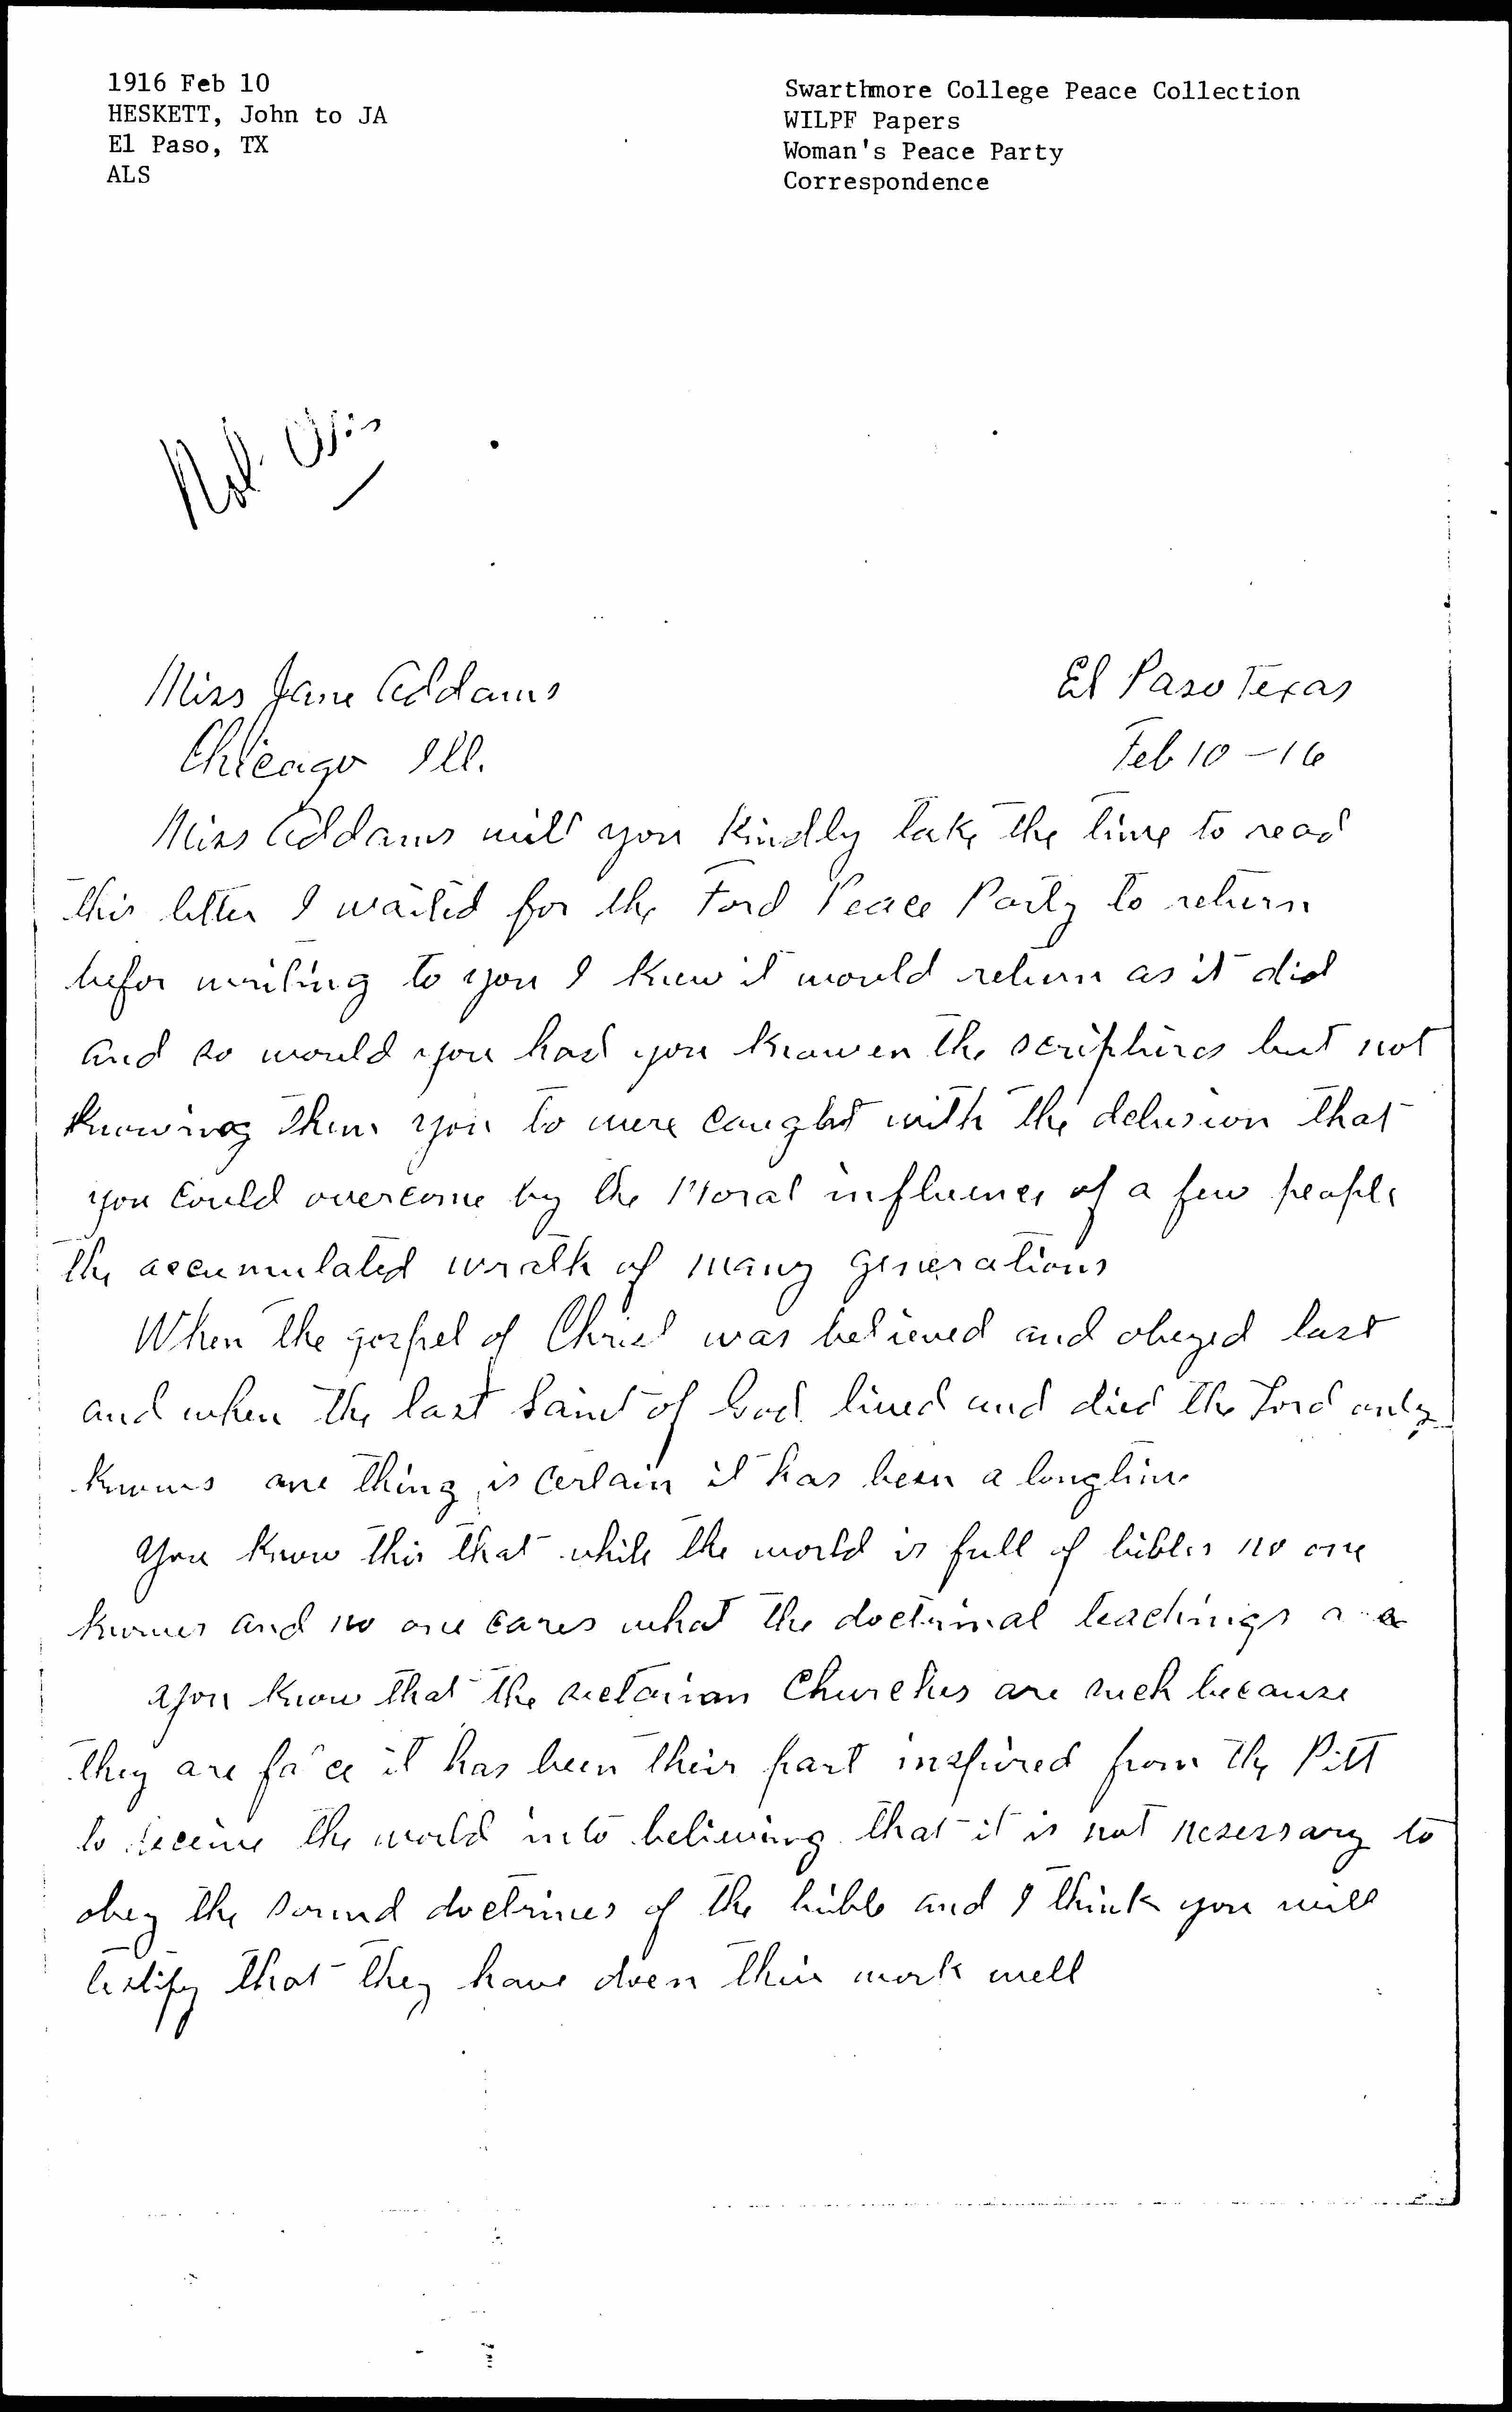 1916 Feb 10
HESKETT, John to JA
El Paso, TX
ALS
Swarthmore College Peace Collection
WILPF Papers
Woman's Peace Party
Correspondence
Miss Jane Addams
El Paso Texas
Chicago Ill.
Feb 10 – 16
Miss Addams will you kindly take the time to read
this letter I waited for the Ford Peace Party to return
befor writing to you I knew it would return as it did
and so would you had you knowen the scriptures but not
knowing them you to were caught with the delusion that
you could overcome by the Moral influence of a few people
the accumulated wrath of many generations
When the gospel of Christ was believed and obeyed last
and when the last Saint of God lived and died the Lord only
knows one thing is certain it has been a longtime
You know this that while the world is full of bibles no one
knows and no one cares what the doctrinal teachings are
You know that the sectarian Churches are such because
they are it has been their part inspired from the Pitt
to deceive the world into believing that it is not nesessary to
obey the sound doctrines of the bible and I think you will
testify that they have doen their work well